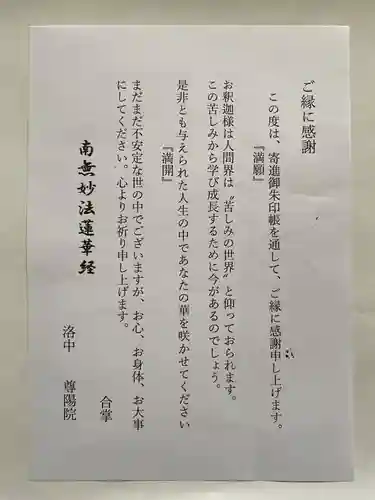 ご縁に感謝
この度は、寄進御朱印帳を通して、ご縁に感謝申し上げます。
『満願』
お釈迦様は人間界は〝苦しみの世界〟と仰っておられます。
この苦しみから学び成長するために今があるのでしょう。
是非とも与えられた人生の中であなたの華を咲かせてください
『満開』
まだまだ不安定な世の中でございますが、お心、お身体、お大事
にしてください。心よりお祈り申し上げます。
南無妙法蓮華経
合掌
洛中 尊陽院